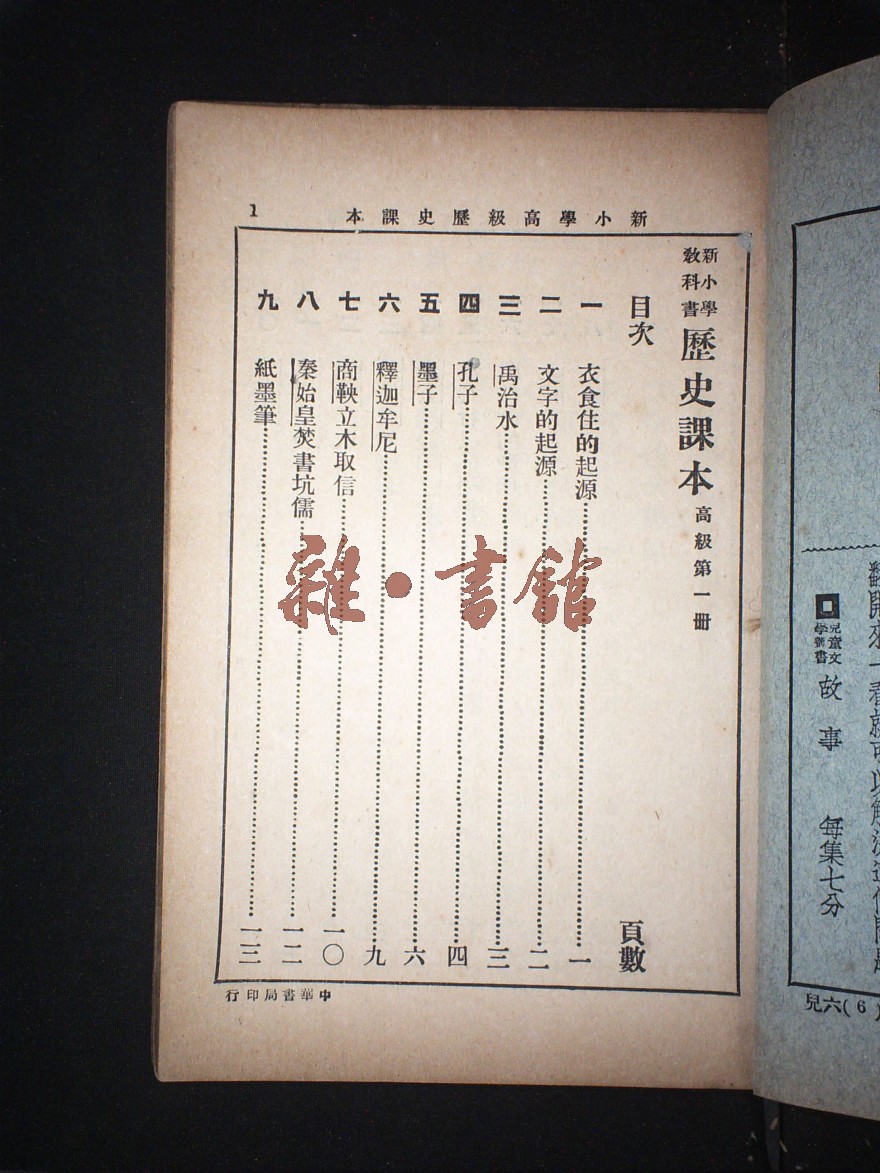 新小學高級歷史課本
1
新小學教科書
歷史課本 高級第一冊
目次 頁數
一 衣食住的起源 一
二 文字的起源 二
三 禹治水 三
四 孔子 四
五 墨子 六
六 釋迦牟尼 九
七 商鞅立木取信 一〇
八 秦始皇焚書坑儒 一二
九 紙墨筆 一三
中華書局印行
雜·書館
兒童文學叢書 故事 每集七分
(6)六兒